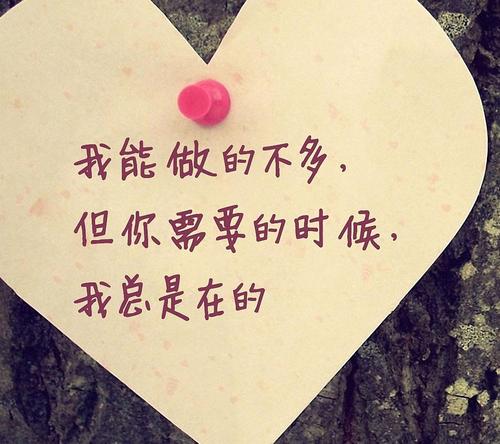 我能做的不多，
但你需要的时候，
我总是在的